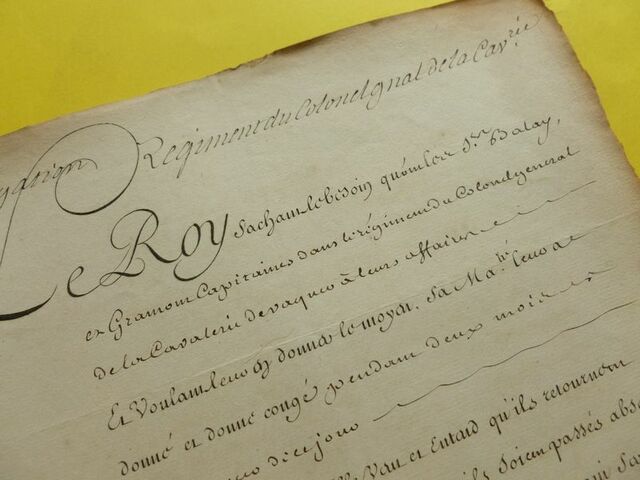 Regiment du Colonel gnal de la Cav.rie
Le Roy sachant le besoin qu'ont les Srs. Balay,
et Gramont Capitaines dans le régiment du Colonel general
de la Cavalerie de vaquer à leurs affaires
Et Voulant leur en donner le moyen, Sa Ma.té leur a
donné et donne congé pendant deux mois
de ce jour
Veut et Entend qu'ils retournent
ils soient passés